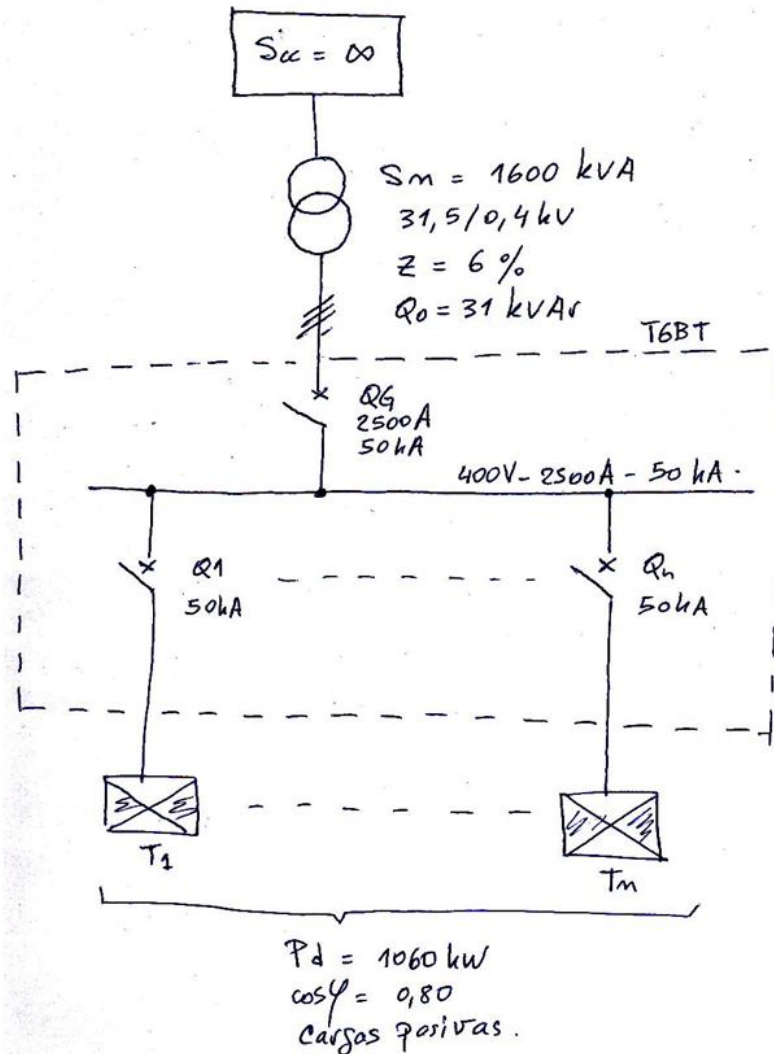 Scc = ∞
Sn = 1600 kVA
31,5/0,4 kV
Z = 6 %
Q0 = 31 kVAr
TGBT
QG
2500A
50kA
400V - 2500A - 50 kA.
Q1
50kA
Qn
50kA
T1
Tn
Pd = 1060 kW
cosφ = 0,80
Cargas pasivas.